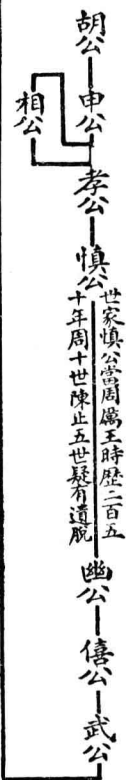 胡公
申公
相公
孝公
慎公
世家慎公當周厲王時歴二百五
十年周十世陳止五世疑有遺脫
幽公
僖公
武公